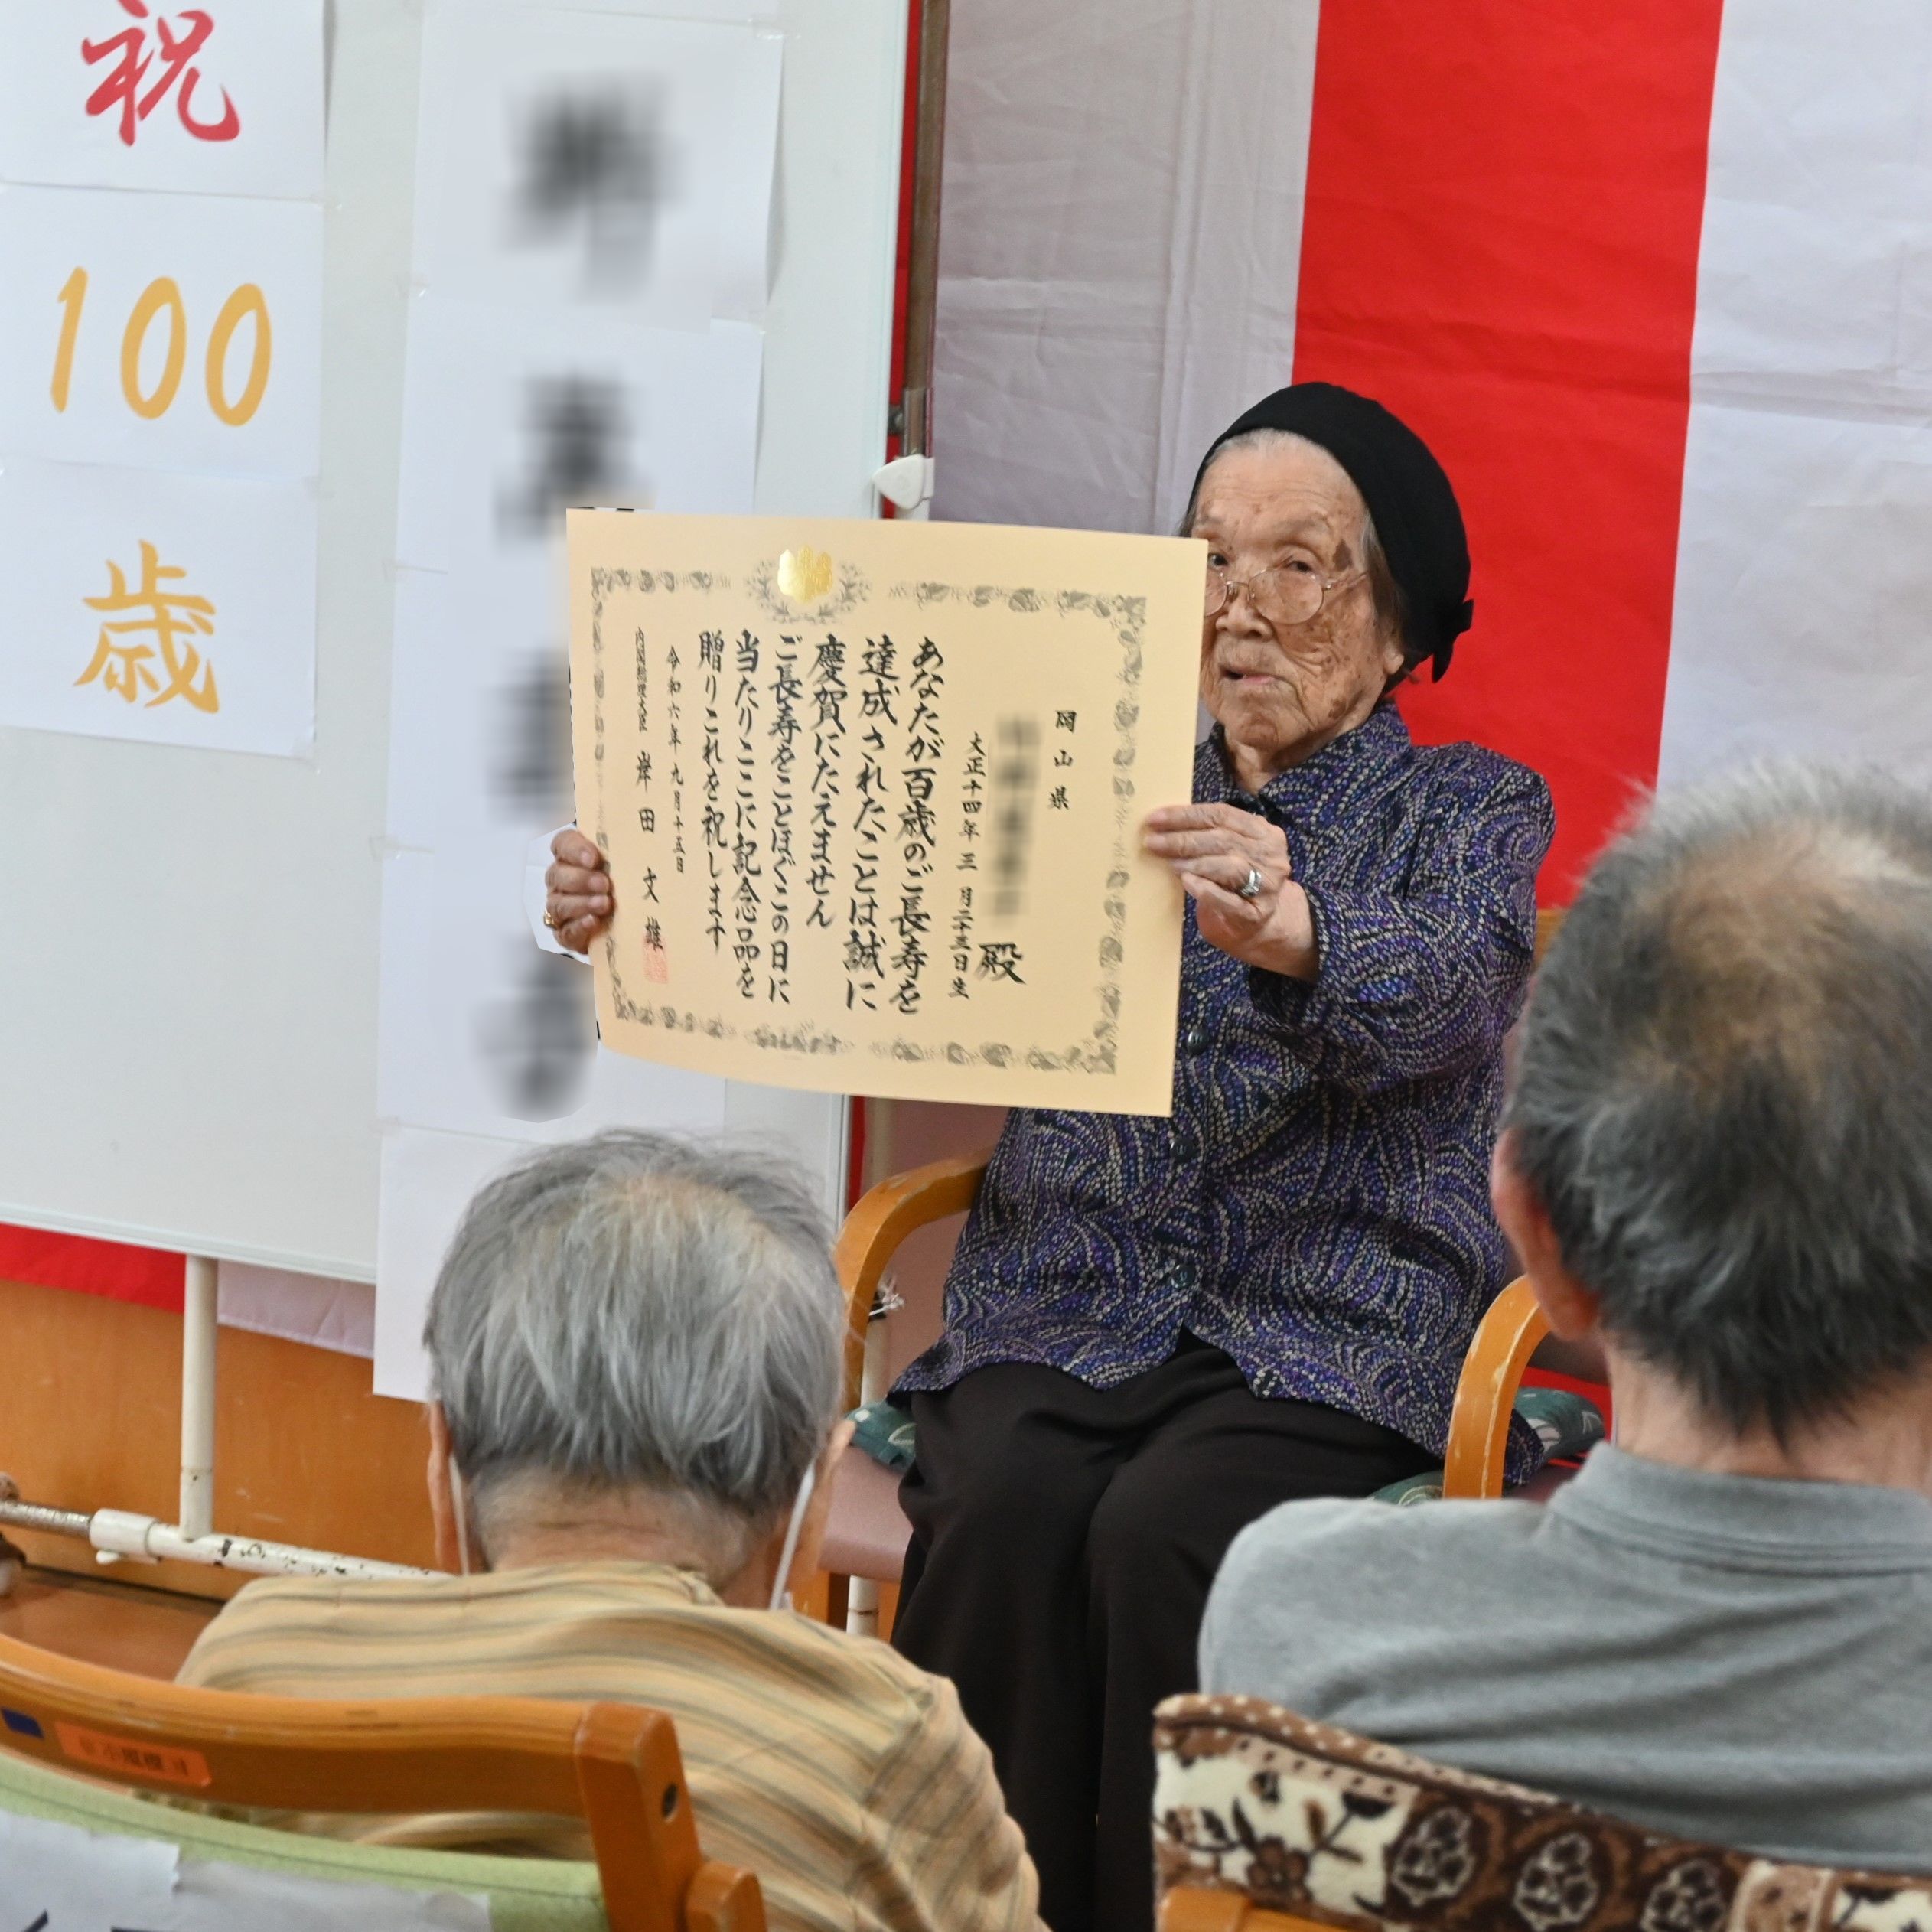 祝
100
歳
岡山県
殿
大正十四年三月二十三日生
あなたが百歳のご長寿を
達成されたことは誠に
慶賀にたえません
ご長寿をことほぐこの日に
当たりここに記念品を
贈りこれを祝します
令和六年九月十五日
内閣総理大臣 岸田文雄